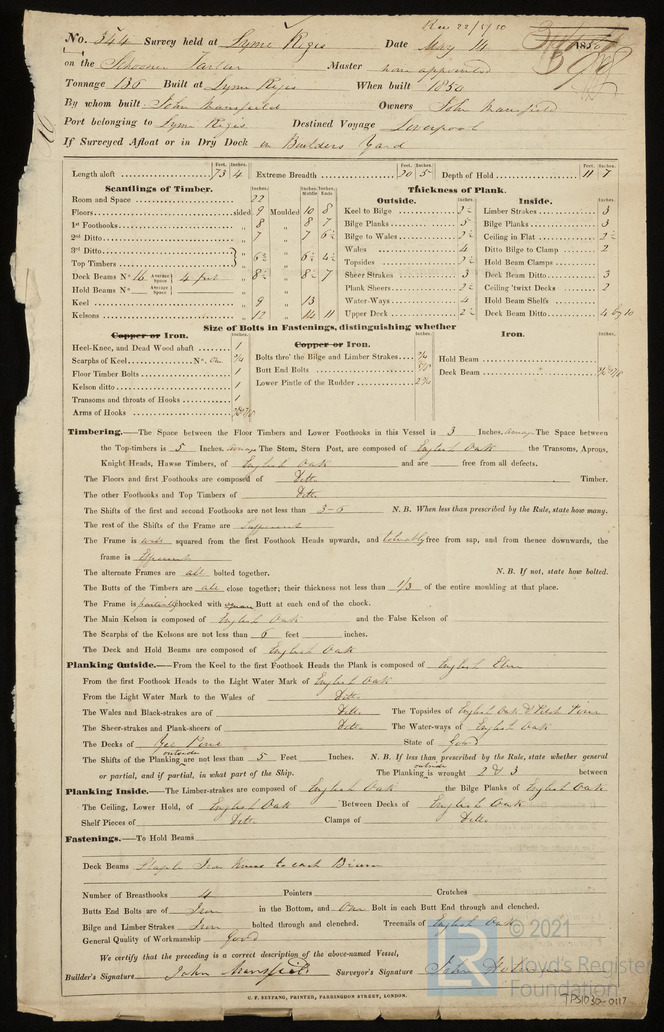 Rec 22/5/50
No. 544 Survey held at Lyme Regis Date May 14 1850
on the Schooner Master non appointed
Tonnage 136 Built at Lyme Regis When built 1850
By whom built John Mansfield Owners John Mansfield
Port belonging to Lyme Regis Destined Voyage Liverpool
If Surveyed Afloat or in Dry Dock in Builders Yard
Feet. Inches. Feet. Inches. Feet. Inches.
Length aloft 73 4 Extreme Breadth 20 5 Depth of Hold 11 7
Scantlings of Timber. Inches. Inches. Middle Inches. Ends
Thickness of Plank.
Outside. Inches. Inside. Inches.
Room and Space 22
Floors sided 9 Moulded 10 8
1st Foothooks „ 8 „ 8 7
2nd Ditto „ 7 „ 7 6½
3rd Ditto
Top Timbers „ 6½ „ 6½ 4½
Deck Beams No. 16 Average Space 4 feet „ 8½ „ 8½ 7
Hold Beams No. Average Space
Keel „ 9 „ 13
Kelsons „ 12 „ 14 11
Keel to Bilge 2½
Bilge Planks 5
Bilge to Wales 2½
Wales 4
Topsides 2½
Sheer Strakes 3
Plank Sheers 2½
Water-Ways 4
Upper Deck 2½
Limber Strakes 3
Bilge Planks 3
Ceiling in Flat 2½
Ditto Bilge to Clamp 2
Hold Beam Clamps
Deck Beam Ditto 3
Ceiling 'twixt Decks 2
Hold Beam Shelfs
Deck Beam Ditto 4 by 10
Size of Bolts in Fastenings, distinguishing whether
Copper or Iron. Inches.
Heel-Knee, and Dead Wood abaft 1
Scarphs of Keel No. 7/8
Floor Timber Bolts 1
Kelson ditto 1
Transoms and throats of Hooks 1
Arms of Hooks
Copper or Iron. Inches.
Bolts thro' the Bilge and Limber Strakes
Butt End Bolts
Lower Pintle of the Rudder
Iron. Inches.
Hold Beam
Deck Beam
Timbering.—The Space between the Floor Timbers and Lower Foothooks in this Vessel is 3 Inches. average The Space between
the Top-timbers is 5 Inches. average The Stem, Stern Post, are composed of English Oak the Transoms, Aprons,
Knight Heads, Hawse Timbers, of English Oak and are free from all defects.
The Floors and first Foothooks are composed of Ditto Timber.
The other Foothooks and Top Timbers of Ditto
The Shifts of the first and second Foothooks are not less than 3–6 N. B. When less than prescribed by the Rule, state how many.
The rest of the Shifts of the Frame are Sufficient
The Frame is well squared from the first Foothook Heads upwards, and tolerably free from sap, and from thence downwards, the
frame is
The alternate Frames are all bolted together. N. B. If not, state how bolted.
The Butts of the Timbers are all close together; their thickness not less than 1/3 of the entire moulding at that place.
The Frame is partially chocked with square Butt at each end of the chock.
The Main Kelson is composed of English Oak and the False Kelson of
The Scarphs of the Kelsons are not less than 6 feet inches.
The Deck and Hold Beams are composed of English Oak
Planking Outside.—From the Keel to the first Foothook Heads the Plank is composed of English Elm
From the first Foothook Heads to the Light Water Mark of English Oak
From the Light Water Mark to the Wales of Ditto
The Wales and Black-strakes are of Ditto The Topsides of English Oak & Pitch Pine
The Sheer-strakes and Plank-sheers of Ditto The Water-ways of English Oak
The Decks of Yel Pine State of Good
The Shifts of the Planking outside are not less than 5 Feet Inches. N. B. If less than prescribed by the Rule, state whether general
or partial, and if partial, in what part of the Ship. The Planking outside is wrought 2 & 3 between
Planking Inside.—The Limber-strakes are composed of English Oak the Bilge Planks of English Oak
The Ceiling, Lower Hold, of English Oak Between Decks of English Oak
Shelf Pieces of Ditto Clamps of Ditto
Fastenings.—To Hold Beams
Deck Beams Staple Iron Knees to each Beam
Number of Breasthooks 4 Pointers Crutches
Butts End Bolts are of Iron in the Bottom, and One Bolt in each Butt End through and clenched.
Bilge and Limber Strakes Iron bolted through and clenched. Treenails of English Oak
General Quality of Workmanship Good
We certify that the preceding is a correct description of the above-named Vessel,
Builder's Signature John Mansfield Surveyor's Signature John
C. F. SEYFANG, PRINTER, FARRINGDON STREET, LONDON.
LR © 2021
Lloyd's Register
Foundation
TPS1030-0117